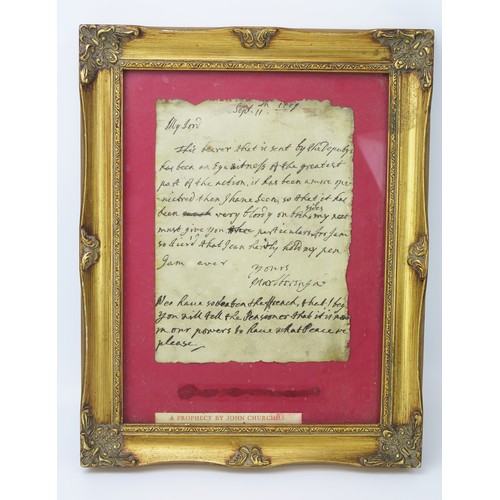 Sept. 11th 1709
My Lord
This bearer that is sent by the Deputys
has been an Eye witness of the greatest
part of the action, it has been a more opi-
niatred then I have seen, so that it has
been much very bloody on both sides
must give you particulars for I am
so tier'd that I can hardly hold my pen
I am ever
yours
Marlborough
We have so beaten the french, that I beg
you will tell the Pensioner that it is now
in our powers to have what Peace we
please
A PROPHECY BY JOHN CHURCHILL